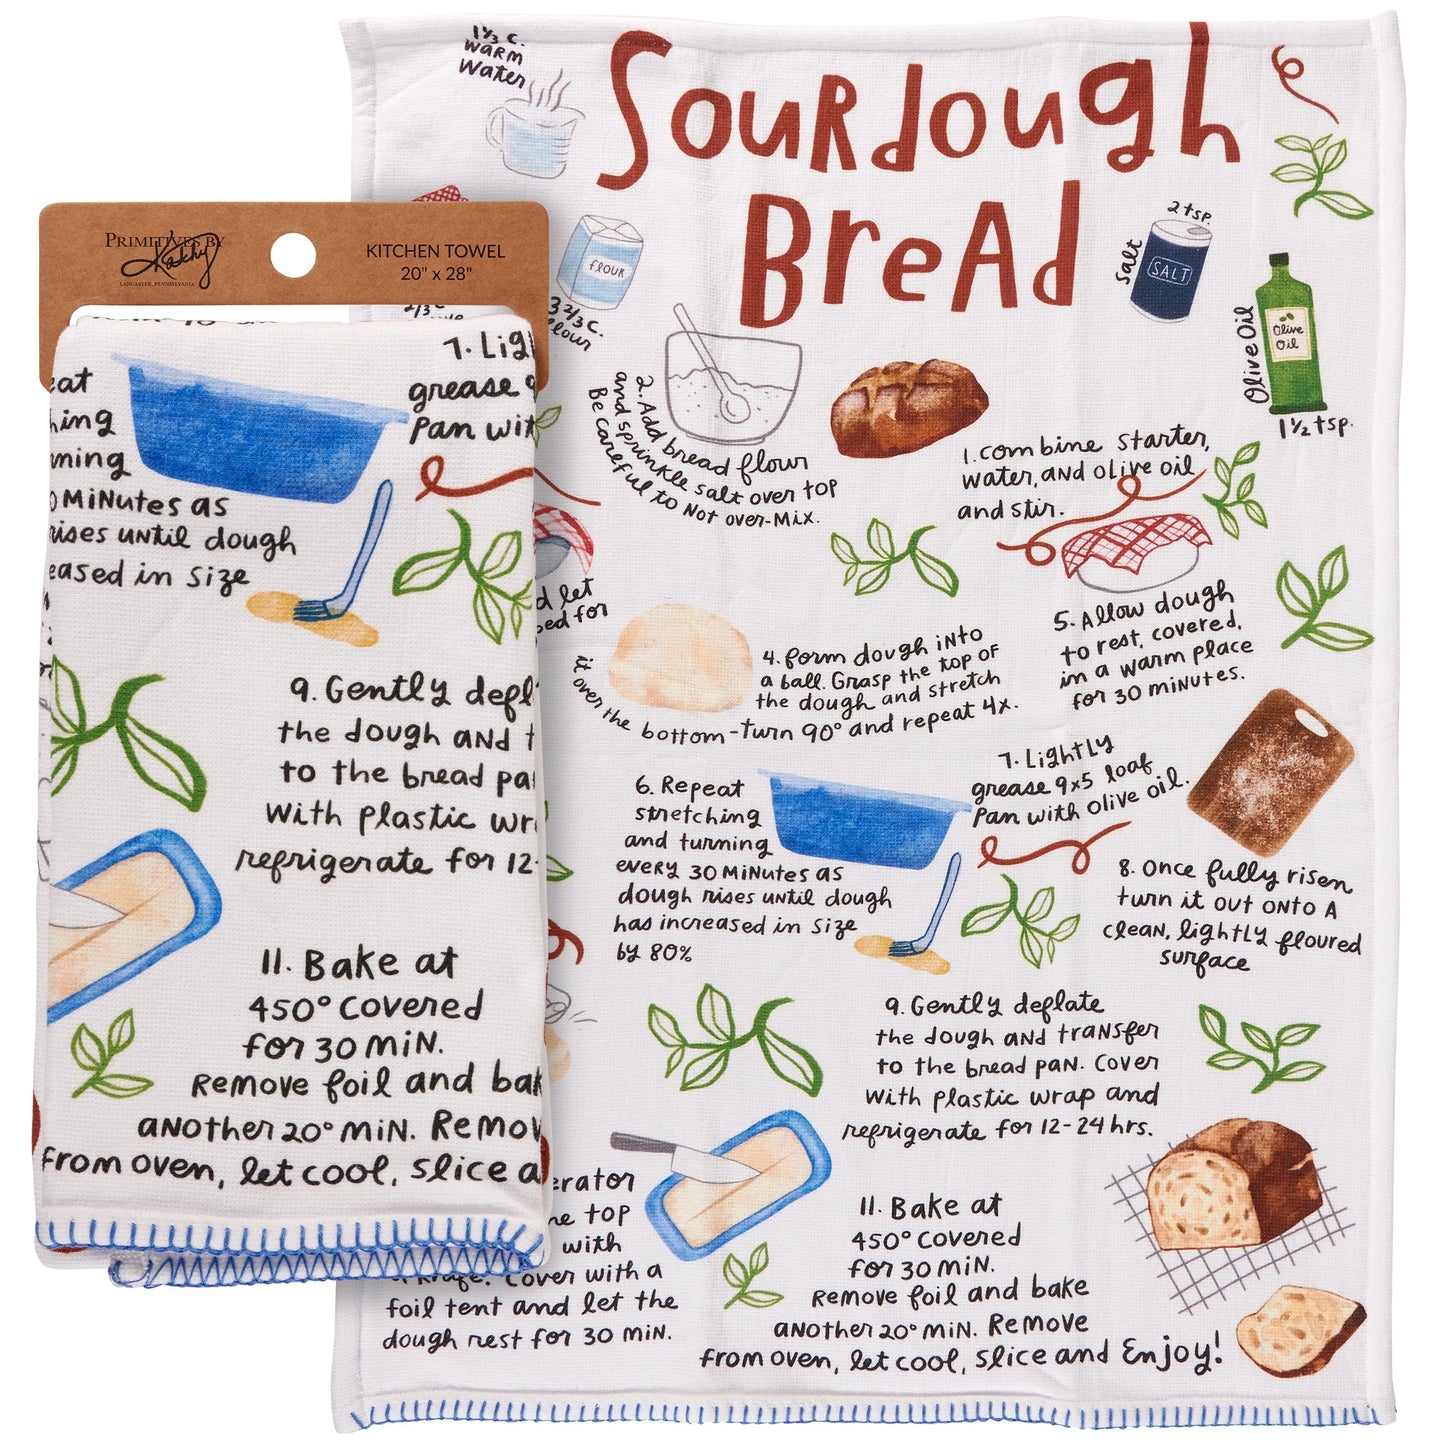 PRIMITIVES BY
Kathy
LANCASTER, PENNSYLVANIA
KITCHEN TOWEL
20" x 28"
7. Lig
grease 9
Pan wit
eat
hing
rning
0 MiNutes as
rises until dough
eased in size
9. Gently defl
the dough and t
to the bread pa
With plastic wr
refrigerate for 12-
11. Bake at
450° covered
for 30 MiN.
Remove foil and bak
another 20° MiN. Remov
from oven, let cool, slice a
Sourdough
Bread
1 1/3 c.
warm
Water
flour
3 2/3 c.
flour
2/3 c
2 tsp.
Salt
SALT
Olive Oil
Olive
Oil
1 1/2 tsp.
1. combine starter,
water, and olive oil
and stir.
2. Add bread flour
and sprinkle salt over top
Be careful to Not over-Mix.
d let
ed for
4. form dough into
a ball. Grasp the top of
the dough and stretch
it over the bottom - turn 90° and repeat 4x.
5. Allow dough
to rest, covered,
in a warm place
for 30 minutes.
6. Repeat
stretching
and turning
every 30 MiNutes as
dough rises until dough
has increased in size
by 80%
7. Lightly
grease 9x5 loaf
Pan with olive oil.
8. Once fully risen
turn it out onto a
clean, lightly floured
surface
9. Gently deflate
the dough and transfer
to the bread pan. Cover
with plastic wrap and
refrigerate for 12-24 hrs.
erator
he top
with
knife. Cover with a
foil tent and let the
dough rest for 30 min.
11. Bake at
450° covered
for 30 MiN.
Remove foil and bake
another 20° MiN. Remove
from oven, let cool, slice and Enjoy!